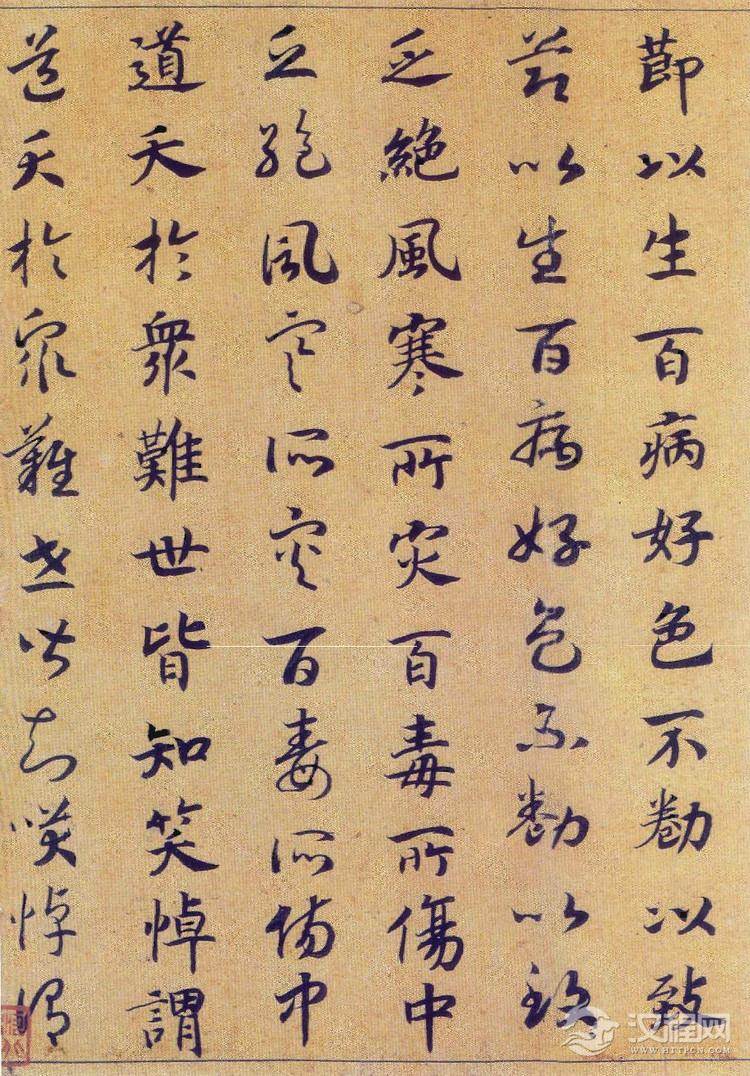 莭以生百病好色不勌以致
莭以生百病好色不勌以致
乏絶風寒所灾百毒所傷中
乏絶風寒所灾百毒所傷中
道夭於衆難世皆知笑悼謂
道夭於衆難世皆知笑悼謂
汉程网
WWW.HTTPCN.COM